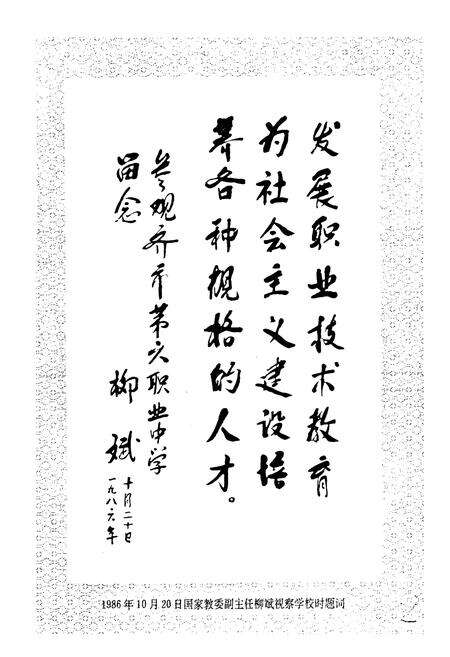 发展职业技术教育
为社会主义建设培
养各种规格的人才。
参观齐市第六职业中学
留念
柳斌
十月二十日
一九八六年
1986年10月20日国家教委副主任柳斌视察学校时题词